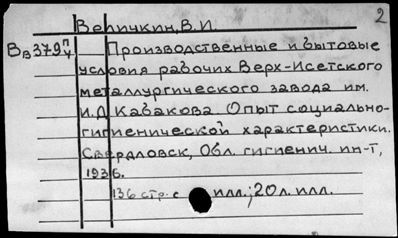 Величкин, В. И
2
Вв379 П/4 Производственные и бытовые
условия рабочих Верх-Исетского
металлургического завода им.
И.Д Кабакова Опыт социально-
гигиенической характеристики.
Свердловск, Обл. гигиенич. ин-т,
1936.
136 стр. с илл.; 20 л. илл.